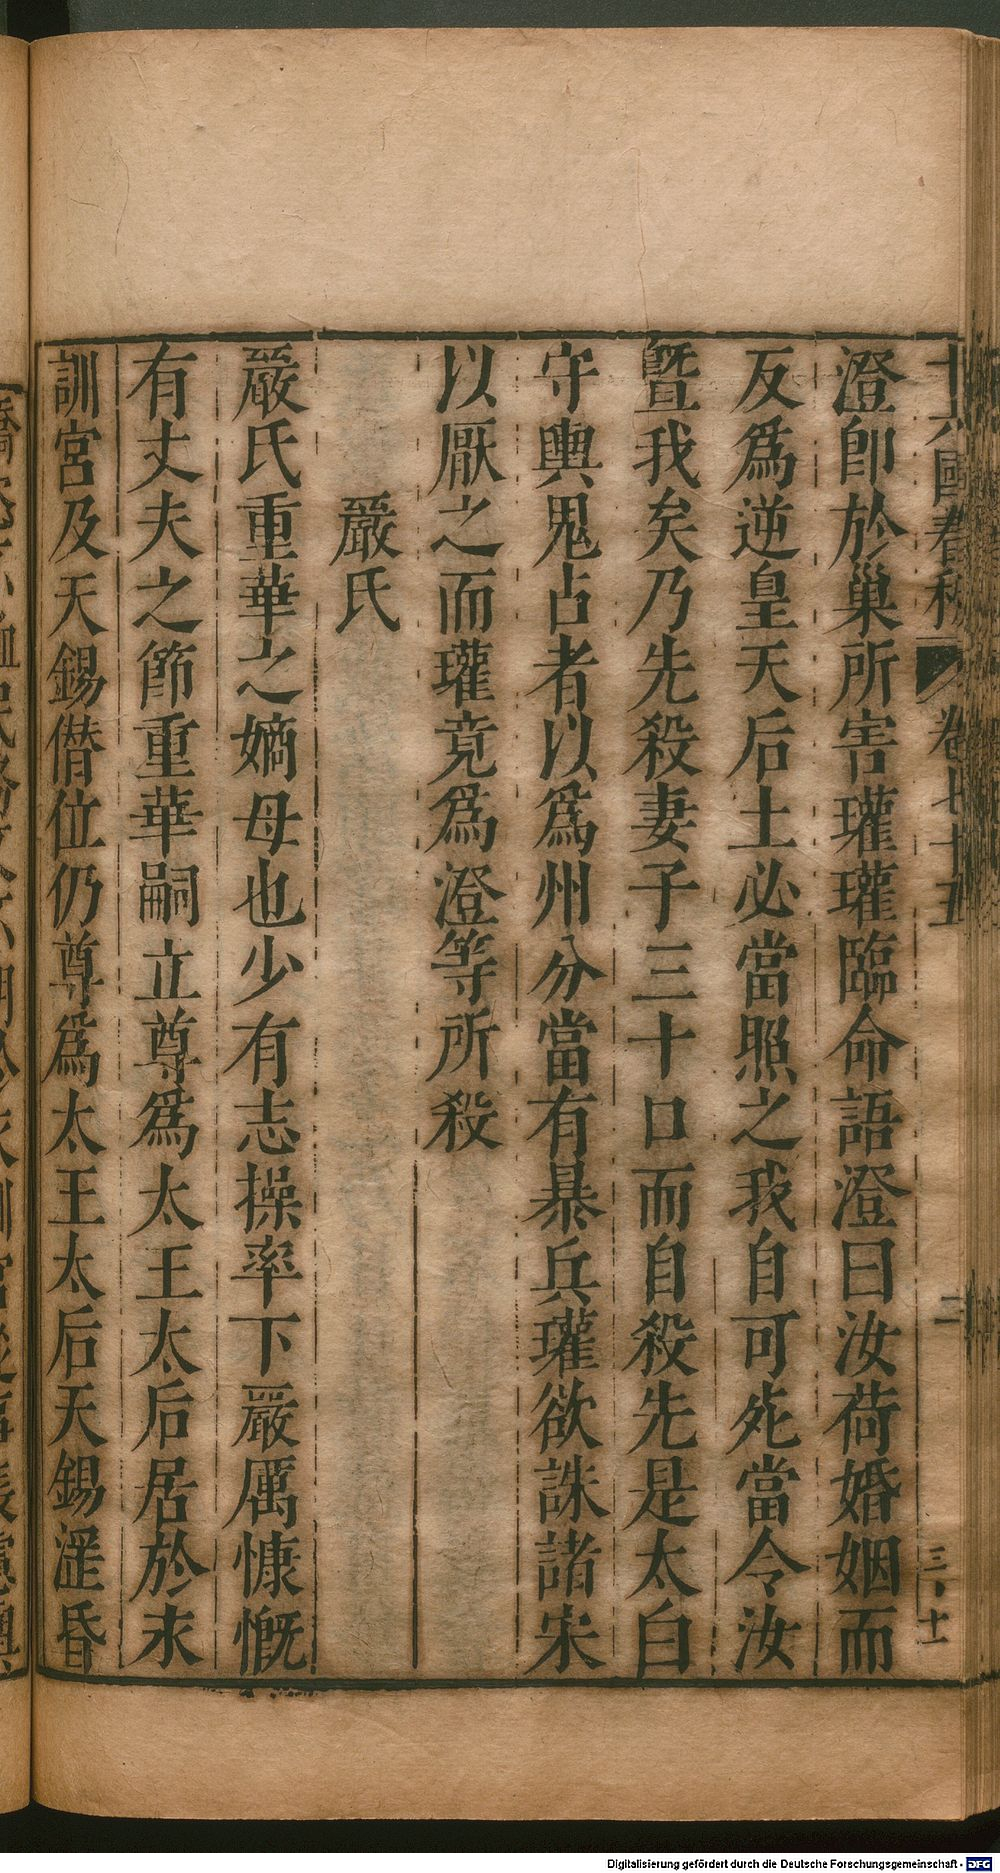 十六國春秋 卷七十五 二 三·十
澄卽於巢所害瓘瓘臨命語澄曰汝荷婚姻而
反爲逆皇天后土必當照之我自可死當令汝
曁我矣乃先殺妻子三十口而自殺先是太白
守輿鬼占者以爲州分當有暴兵瓘欲誅諸宋
以厭之而瓘竟爲澄等所殺
嚴氏
嚴氏重華之嫡母也少有志操率下嚴厲慷慨
有丈夫之節重華嗣立尊爲太王太后居於永
訓宮及天錫僣位仍尊爲太王太后天錫滛昏
Digitalisierung gefördert durch die Deutsche Forschungsgemeinschaft - DFG